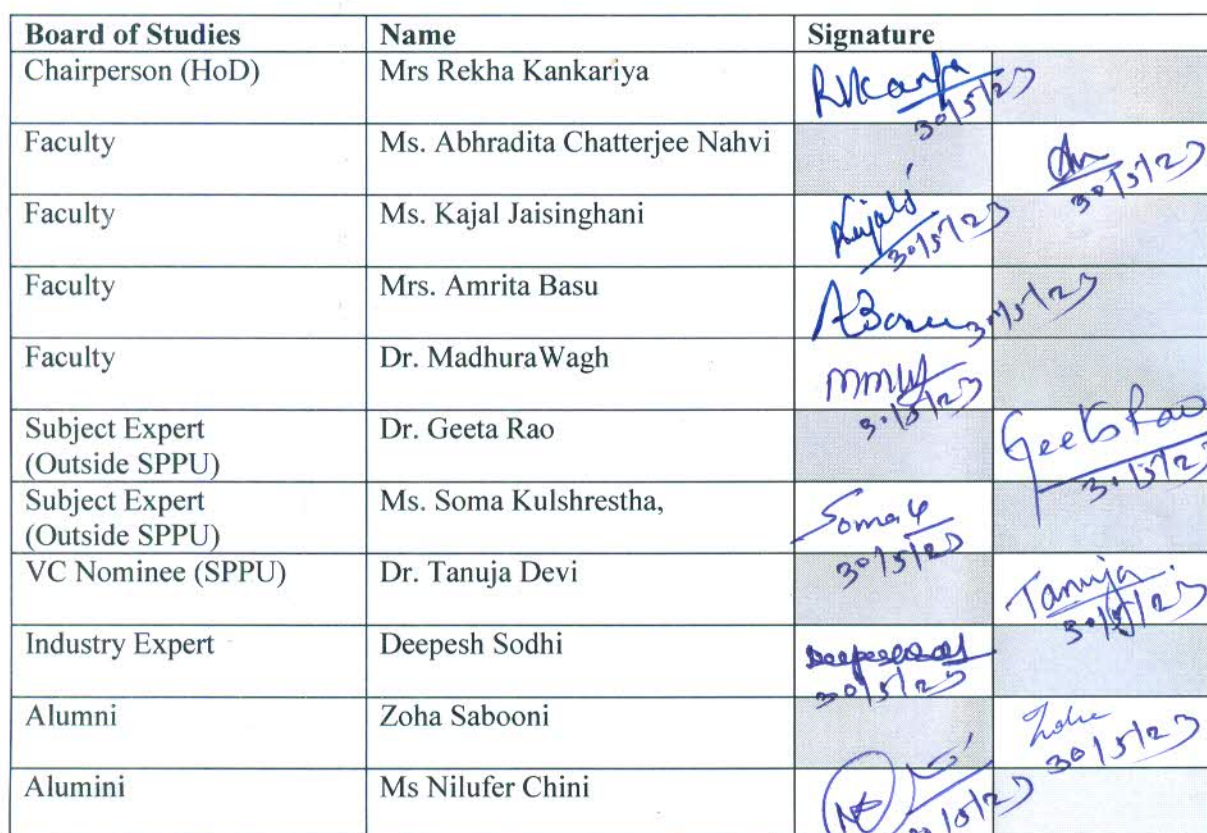 Board of Studies Name Signature
Chairperson (HoD) Mrs Rekha Kankariya
30/5/23
Faculty Ms. Abhradita Chatterjee Nahvi
30/5/23
Faculty Ms. Kajal Jaisinghani
30/5/23
Faculty Mrs. Amrita Basu ABasu 30/5/23
Faculty Dr. MadhuraWagh
30/5/23
Subject Expert Dr. Geeta Rao Geeta Rao
(Outside SPPU) 30/5/23
Subject Expert Ms. Soma Kulshrestha, Soma
(Outside SPPU) 30/5/23
VC Nominee (SPPU) Dr. Tanuja Devi Tanuja
30/5/23
Industry Expert Deepesh Sodhi
30/5/23
Alumni Zoha Sabooni Zoha
30/5/23
Alumini Ms Nilufer Chini
30/5/23